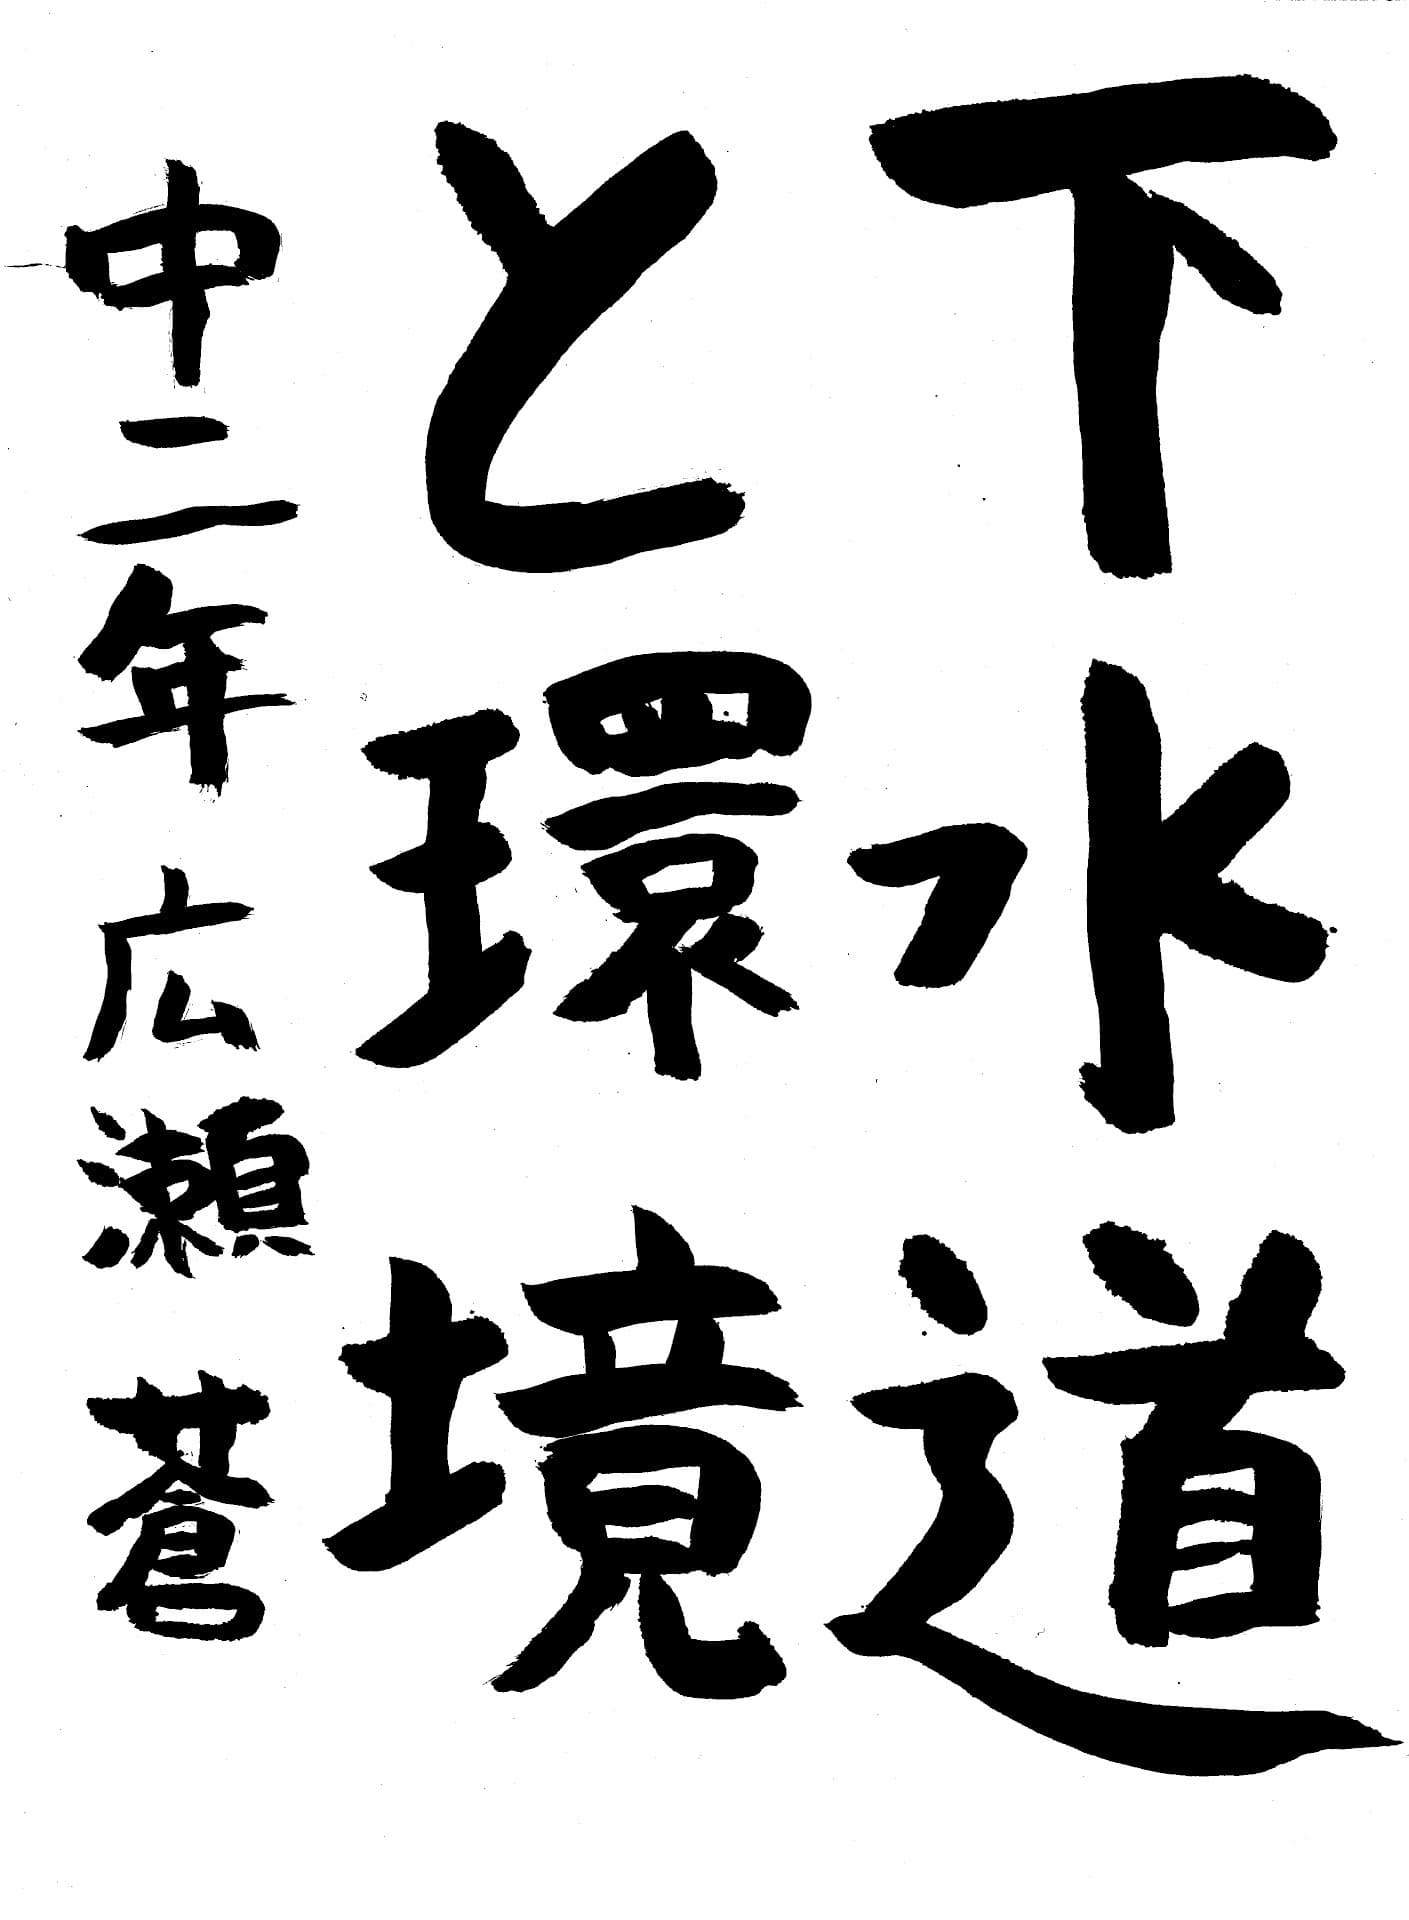 下水道
と環境
中二年 広瀬 蒼